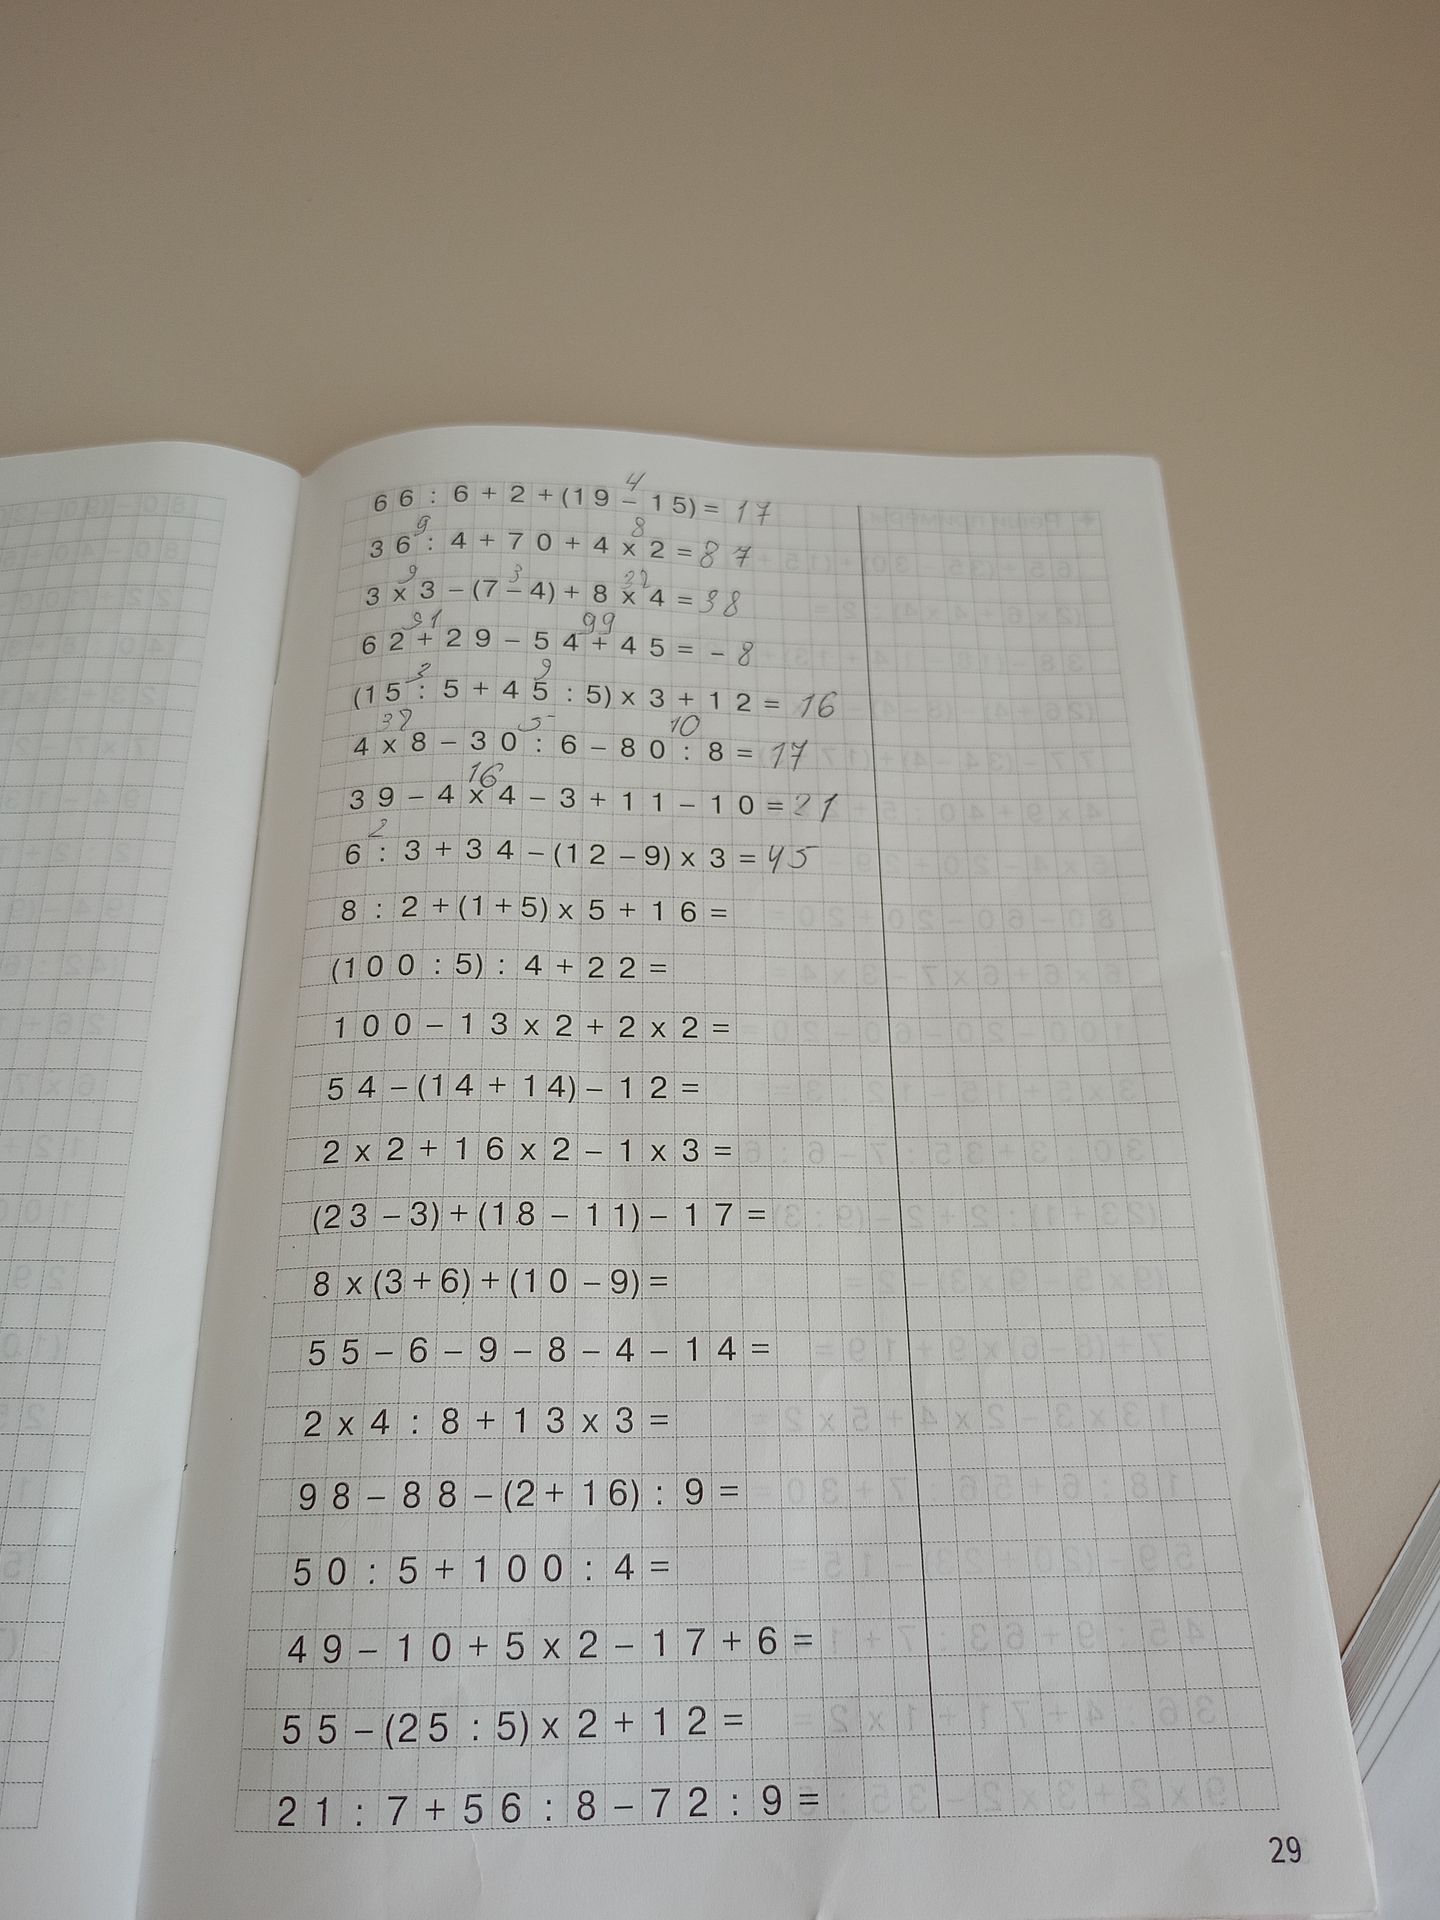 4
66 : 6 + 2 + (19 – 15) = 17
9 8
36 : 4 + 70 + 4 x 2 = 87
9 3 32
3 x 3 – (7 – 4) + 8 x 4 = 38
91 99
62 + 29 – 54 + 45 = – 8
3 9
(15 : 5 + 45 : 5) x 3 + 12 = 16
32 5 10
4 x 8 – 30 : 6 – 80 : 8 = 17
16
39 – 4 x 4 – 3 + 11 – 10 = 21
2
6 : 3 + 34 – (12 – 9) x 3 = 45
8 : 2 + (1 + 5) x 5 + 16 =
(100 : 5) : 4 + 22 =
100 – 13 x 2 + 2 x 2 =
54 – (14 + 14) – 12 =
2 x 2 + 16 x 2 – 1 x 3 =
(23 – 3) + (18 – 11) – 17 =
8 x (3 + 6) + (10 – 9) =
55 – 6 – 9 – 8 – 4 – 14 =
2 x 4 : 8 + 13 x 3 =
98 – 88 – (2 + 16) : 9 =
50 : 5 + 100 : 4 =
49 – 10 + 5 x 2 – 17 + 6 =
55 – (25 : 5) x 2 + 12 =
21 : 7 + 56 : 8 – 72 : 9 =
29